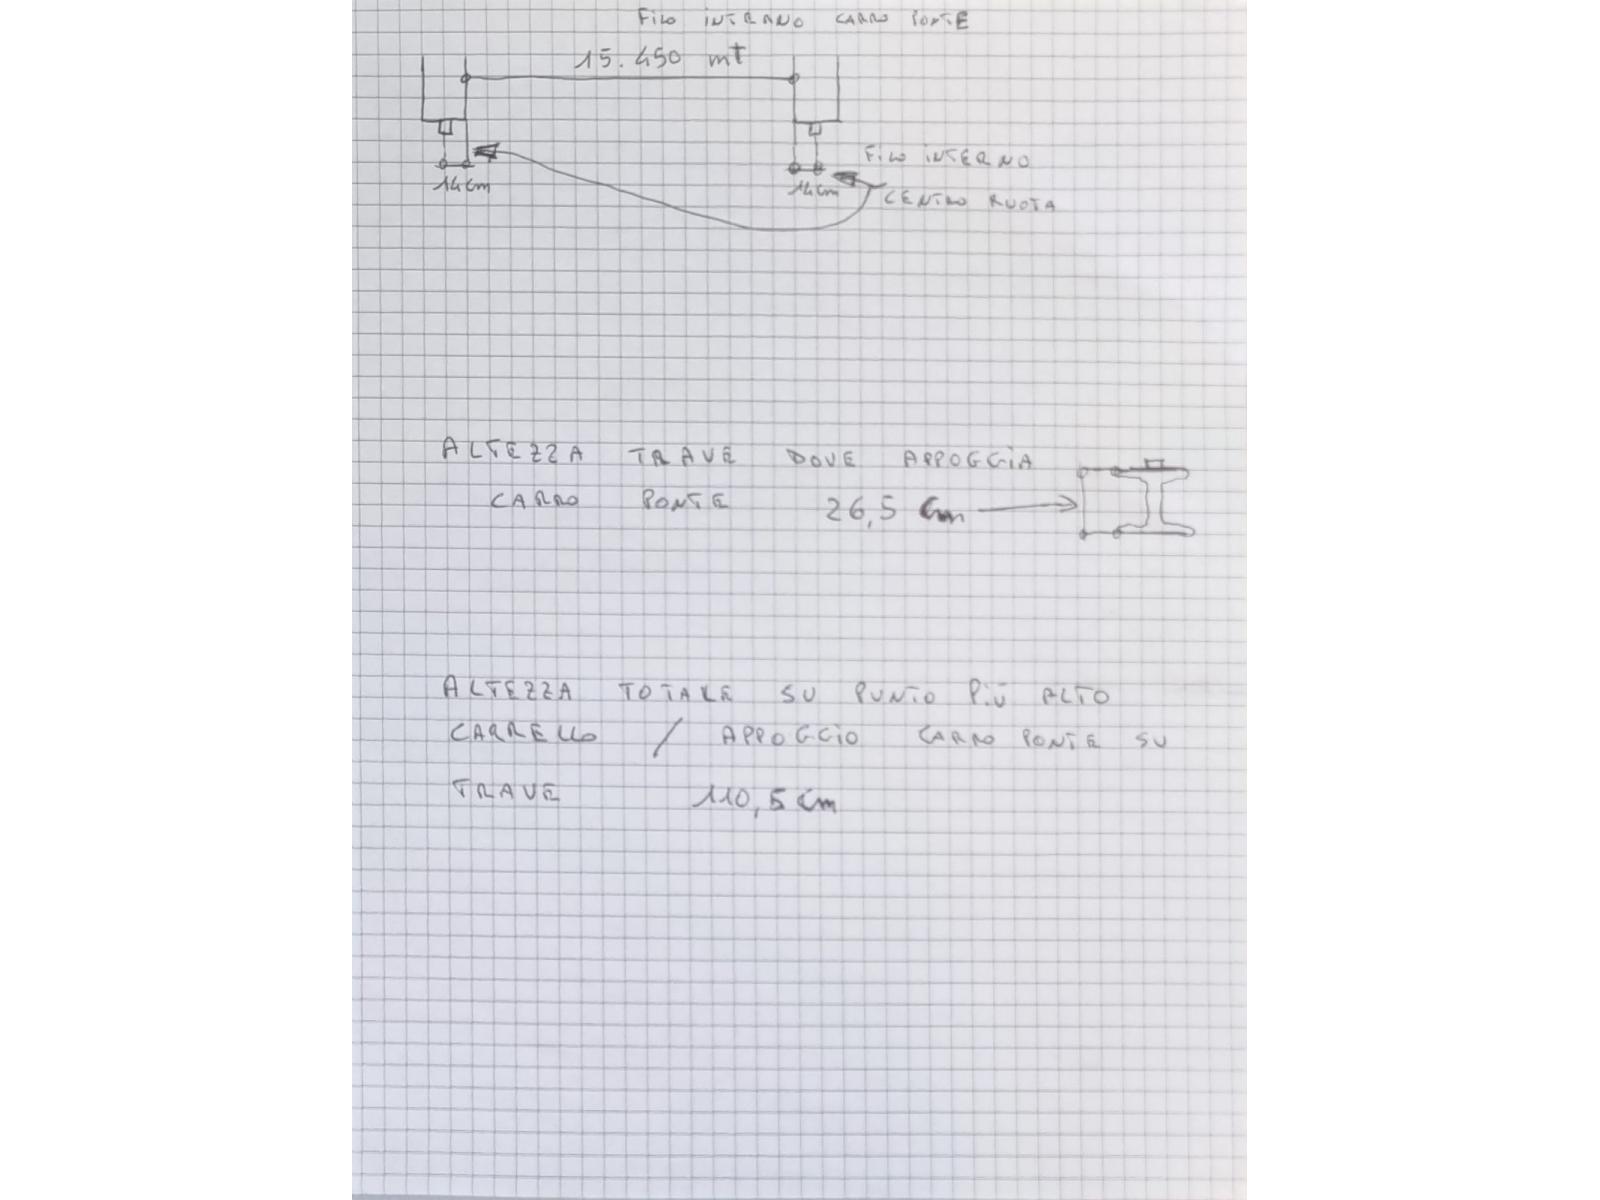 FILO INTERNO CARRO PONTE
15.450 mt
FILO INTERNO
14cm
14cm
CENTRO RUOTA
ALTEZZA TRAVE DOVE APPOGGIA
CARRO PONTE 26,5 cm
ALTEZZA TOTALE SU PUNTO PIÙ ALTO
CARRELLO / APPOGGIO CARRO PONTE SU
TRAVE 110,5 cm